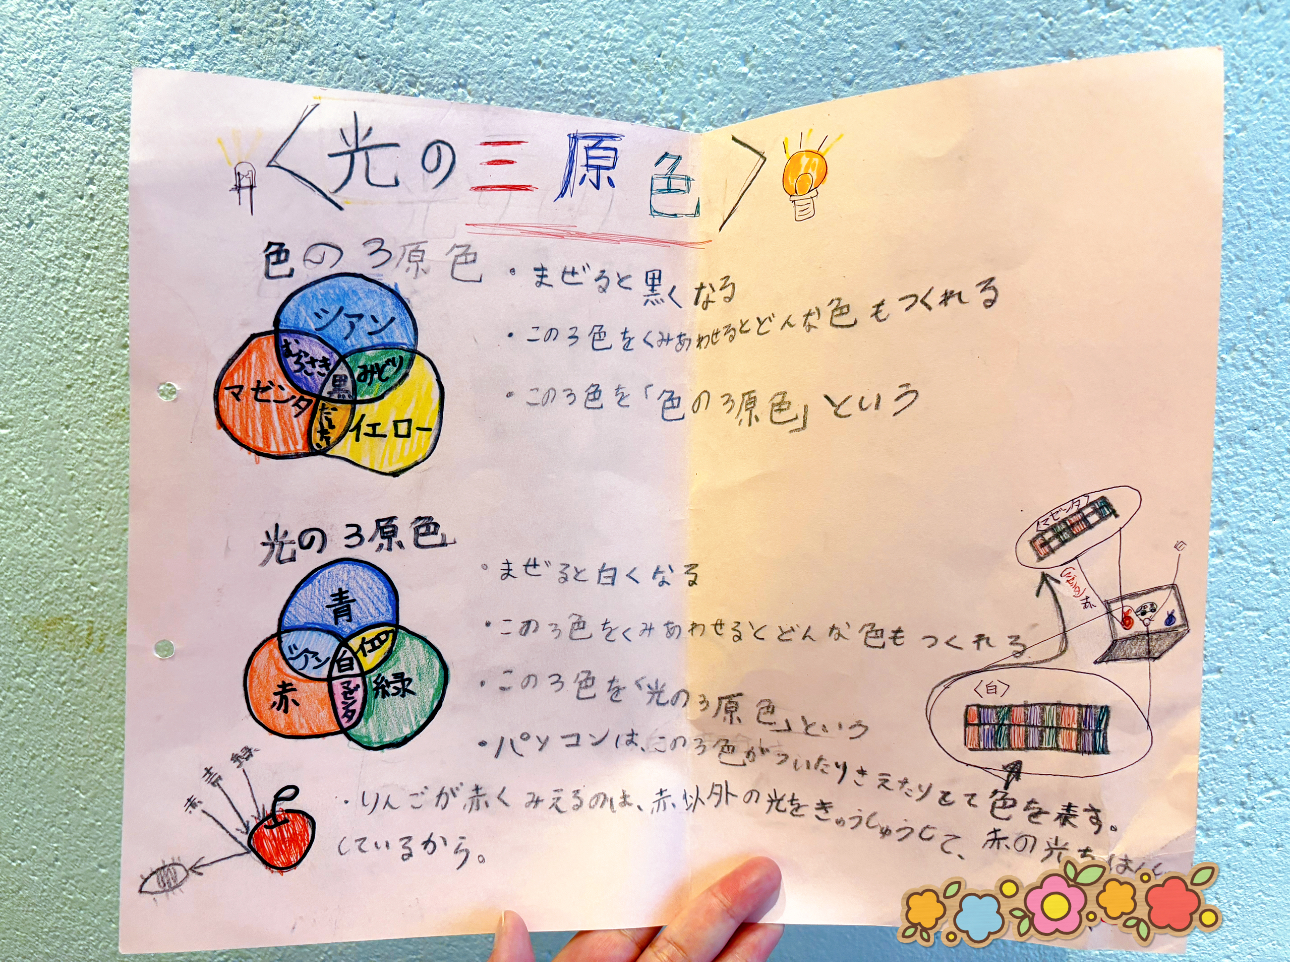 〈光の三原色〉
色の3原色
ツアン
むらさき
みどり
黒
マゼンタ
だいだい
イエロー
・まぜると黒くなる
・この3色をくみあわせるとどんな色もつくれる
・この3色を「色の3原色」という
光の3原色
青
シアン
イエロー
白
赤
マゼンタ
緑
・まぜると白くなる
・この3色をくみあわせるとどんな色もつくれる
・この3色を「光の3原色」という
・パソコンは、この3色がついたりきえたりして色を表す。
〈マゼンタ〉
赤
白
〈白〉
赤
青
緑
・りんごが赤くみえるのは、赤以外の光をきゅうしゅうして、赤の光をはん
しているから。